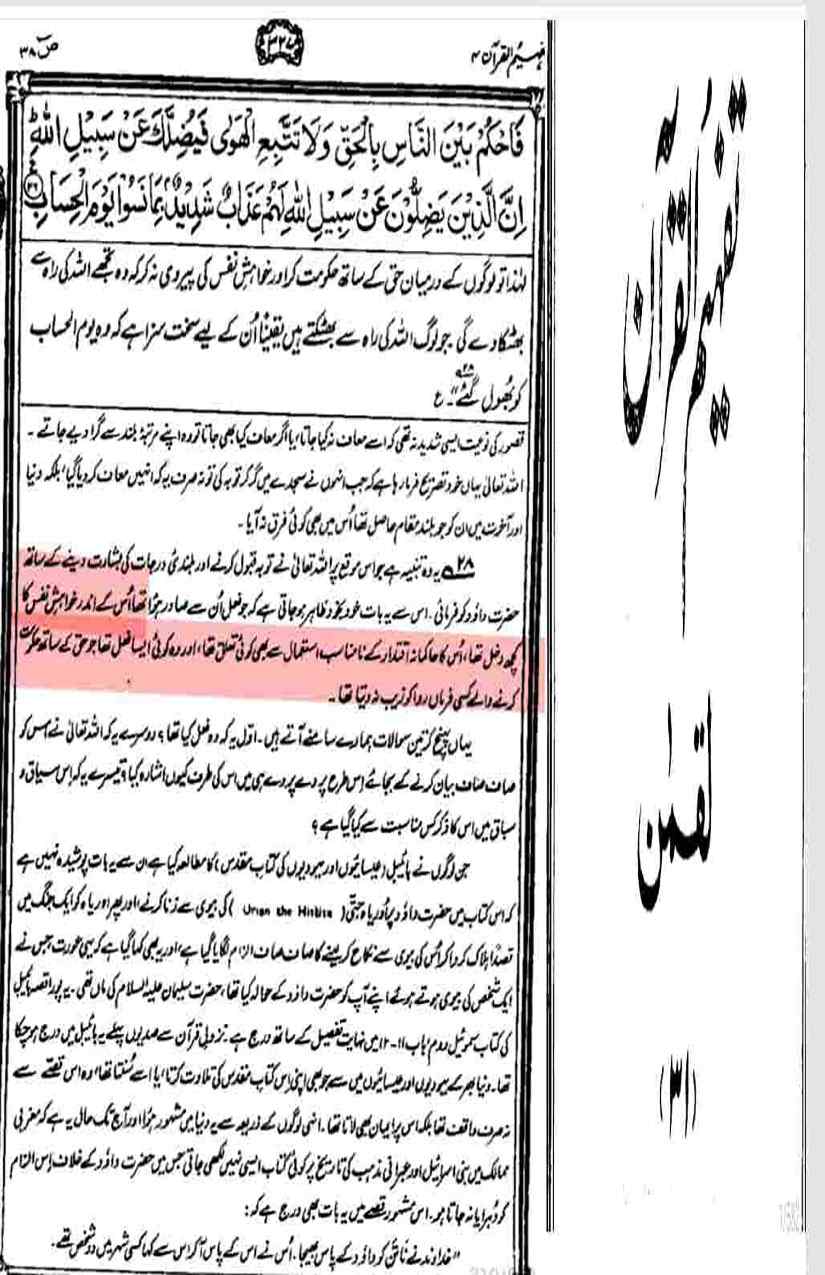 تفہیم القرآن ۴
۳۲۷
صٓ ۳۸
فَاحْكُمْ بَيْنَ النَّاسِ بِالْحَقِّ وَلَا تَتَّبِعِ الْهَوٰى فَيُضِلَّكَ عَنْ سَبِيْلِ اللّٰهِ ؕ
اِنَّ الَّذِيْنَ يَضِلُّوْنَ عَنْ سَبِيْلِ اللّٰهِ لَهُمْ عَذَابٌ شَدِيْدٌۢ بِمَا نَسُوْا يَوْمَ الْحِسَابِ ﴿۲۶﴾
لہٰذا تو لوگوں کے درمیان حق کے ساتھ حکومت کر اور خواہشِ نفس کی پیروی نہ کر کہ وہ تجھے اللہ کی راہ سے
بھٹکا دے گی۔ جو لوگ اللہ کی راہ سے بھٹکتے ہیں یقیناً اُن کے لیے سخت سزا ہے کہ وہ یوم الحساب
کو بھول گئے"۔ ۲۸ ع
قصور کی نوعیت ایسی شدید نہ تھی کہ اسے معاف نہ کیا جاتا، یا اگر معاف کیا بھی جاتا تو وہ اپنے مرتبۂ بلند سے گرا دیے جاتے۔
اللہ تعالیٰ یہاں خود تصریح فرما رہا ہے کہ جب انہوں نے سجدے میں گر کر توبہ کی تو نہ صرف یہ کہ انہیں معاف کر دیا گیا، بلکہ دنیا
اور آخرت میں ان کو جو بلند مقام حاصل تھا اُس میں بھی کوئی فرق نہ آیا۔
۲۸ یہ وہ تنبیہ ہے جو اس موقع پر اللہ تعالیٰ نے توبہ قبول کرنے اور بلندیٔ درجات کی بشارت دینے کے ساتھ
حضرت داؤد کو فرمائی۔ اس سے یہ بات خود بخود ظاہر ہو جاتی ہے کہ جو فعل اُن سے صادر ہوا تھا اُس کے اندر خواہشِ نفس کا
کچھ دخل تھا، اُس کا حاکمانہ اقتدار کے نامناسب استعمال سے بھی کوئی تعلق تھا، اور وہ کوئی ایسا فعل تھا جو حق کے ساتھ حکومت
کرنے والے کسی فرماں روا کو زیب نہ دیتا تھا۔
یہاں پہنچ کر تین سوالات ہمارے سامنے آتے ہیں۔ اوّل یہ کہ وہ فعل کیا تھا؟ دوسرے یہ کہ اللہ تعالیٰ نے اس کو
صاف صاف بیان کرنے کے بجائے اِس طرح پردے پردے ہی میں اس کی طرف کیوں اشارہ کیا؟ تیسرے یہ کہ اِس سیاق و
سباق میں اس کا ذکر کس مناسبت سے کیا گیا ہے؟
جن لوگوں نے بائیبل (عیسائیوں اور یہودیوں کی کتاب مقدس) کا مطالعہ کیا ہے ان سے یہ بات پوشیدہ نہیں ہے
کہ اس کتاب میں حضرت داؤد پر اُوریاہ حِتّی (Uriah the Hittite) کی بیوی سے زنا کرنے اور پھر اوریاہ کو ایک جنگ میں
قصداً ہلاک کروا کر اُس کی بیوی سے نکاح کر لینے کا صاف صاف الزام لگایا گیا ہے، اور یہ بھی کہا گیا ہے کہ یہی عورت جس نے
ایک شخص کی بیوی ہوتے ہوئے اپنے آپ کو حضرت داؤد کے حوالہ کیا تھا، حضرت سلیمان علیہ السلام کی ماں تھی۔ یہ پورا قصہ بائیبل
کی کتاب سموئیل دوم، باب ۱۱-۱۲ میں نہایت تفصیل کے ساتھ درج ہے۔ نزولِ قرآن سے صدیوں پہلے یہ بائیبل میں درج ہو چکا
تھا۔ دنیا بھر کے یہودیوں اور عیسائیوں میں سے جو بھی اپنی اِس کتاب مقدس کی تلاوت کرتا، یا اسے سُنتا تھا، وہ اس قصے سے
نہ صرف واقف تھا بلکہ اس پر ایمان بھی لاتا تھا۔ انہی لوگوں کے ذریعہ سے یہ دنیا میں مشہور ہوا اور آج تک حال یہ ہے کہ مغربی
ممالک میں بنی اسرائیل اور عبرانی مذہب کی تاریخ پر کوئی کتاب ایسی نہیں لکھی جاتی جس میں حضرت داؤد کے خلاف اِس الزام
کو دُہرایا نہ جاتا ہو۔ اس مشہور قصے میں یہ بات بھی درج ہے کہ:
"خداوند نے ناتن کو داؤد کے پاس بھیجا۔ اُس نے اس کے پاس آ کر اس سے کہا کسی شہر میں دو شخص تھے۔
تفہیم القرآن
لقمٰن
(۳۱)